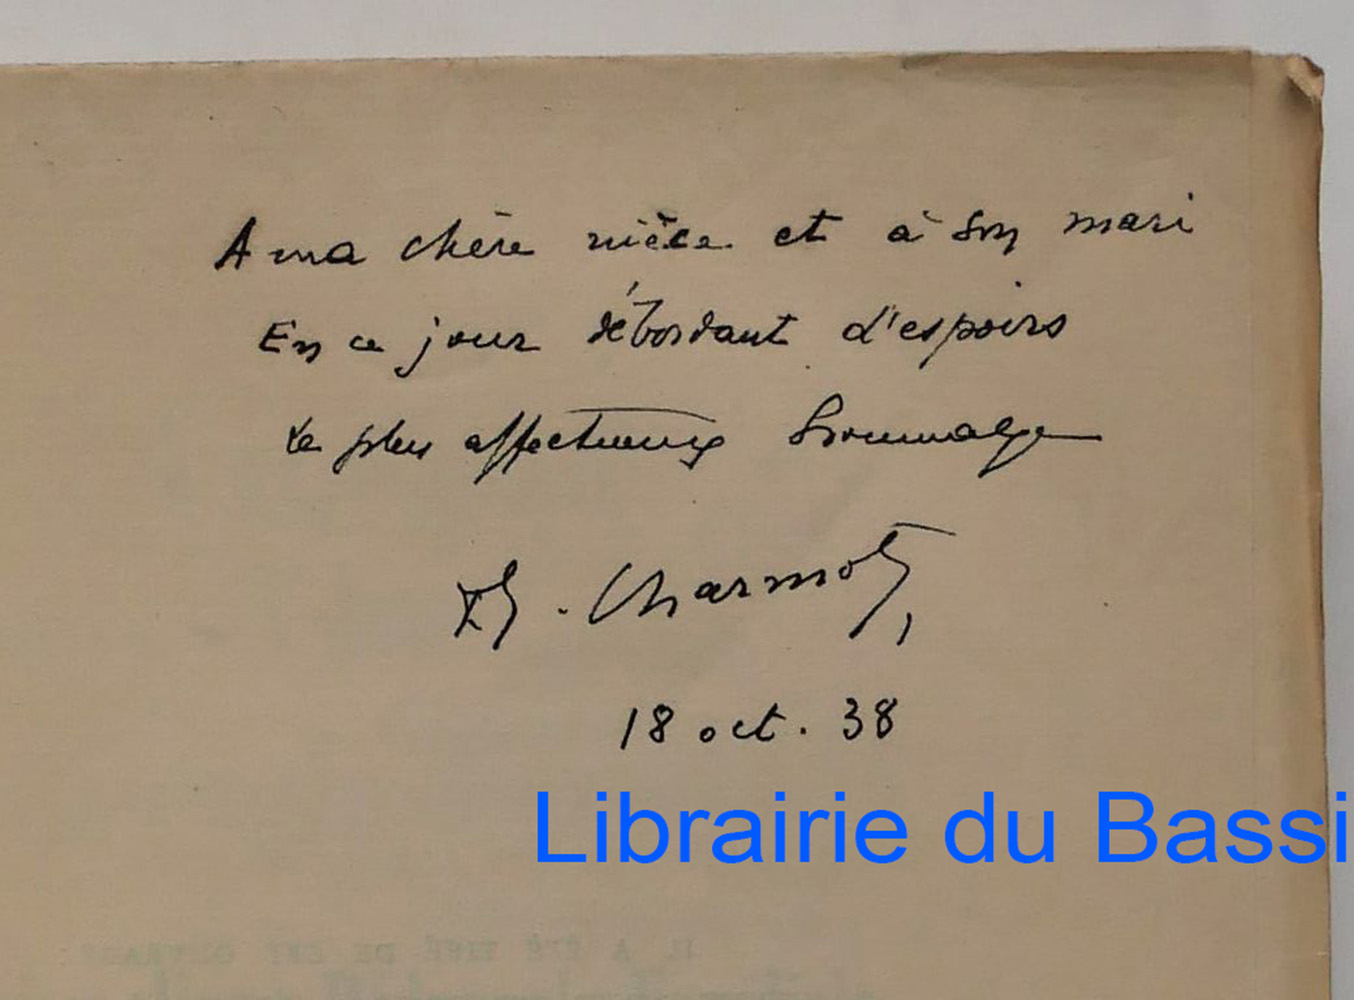 A ma chère nièce et à son mari
En ce jour débordant d'espoirs
Le plus affectueux hommage
Charmot
18 oct. 38
Librairie du Bassi
IL A ÉTÉ TIRÉ DE CET OUVRAGE